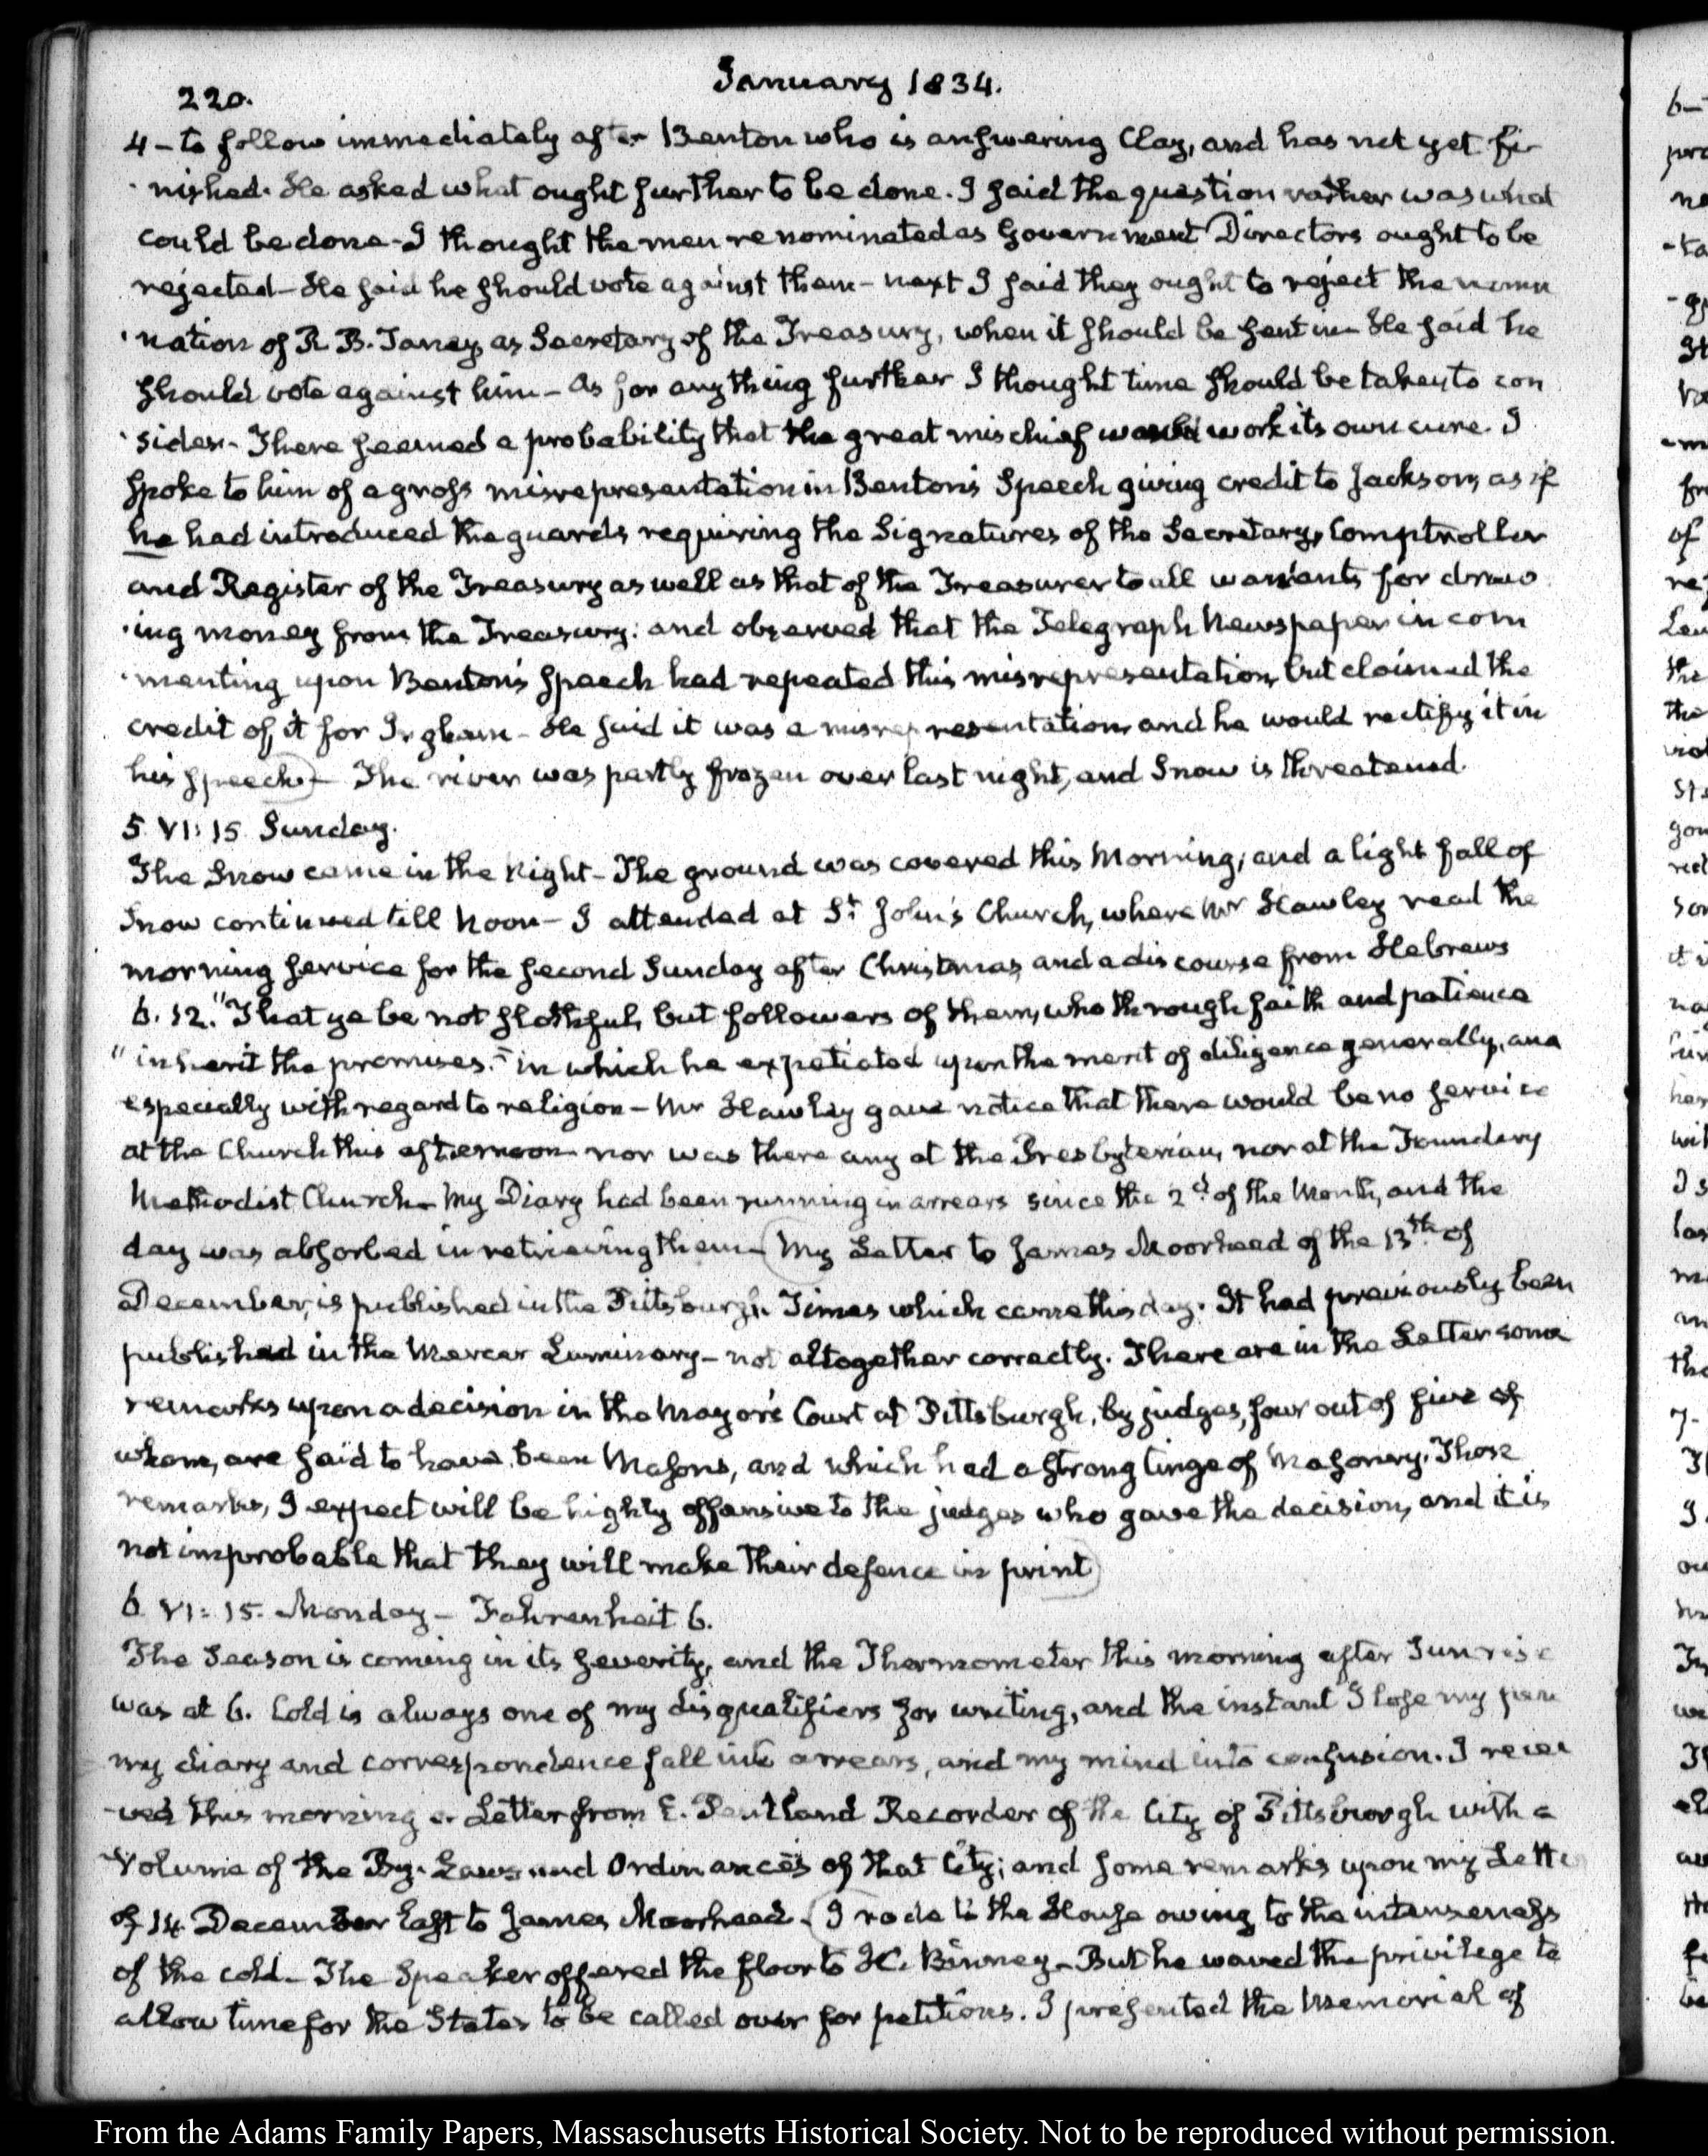 220.
January 1834.
4 - to follow immediately after Benton who is answering Clay, and has not yet fi-
-nished. He asked what ought further to be done. I said the question rather was what
could be done - I thought the men renominated as Government Directors ought to be
rejected - He said he should vote against them - next I said they ought to reject the nomi
-nation of R. B. Taney as Secretary of the Treasury, when it should be sent in - He said he
should vote against him - As for any thing further I thought time should be taken to con
-sider - There seemed a probability that the great mischief would work its own cure. I
spoke to him of a gross misrepresentation in Benton's Speech giving credit to Jackson, as if
he had introduced the guards requiring the Signatures of the Secretary, Comptroller
and Register of the Treasury as well as that of the Treasurer to all warrants for draw
-ing money from the Treasury: and observed that the Telegraph Newspaper in com
-menting upon Benton's Speech had repeated this misrepresentation, but claimed the
credit of it for Ingham - He said it was a misrepresentation, and he would rectify it in
his Speech - The river was partly frozen over last night, and Snow is threatened.
5 VI: 15 Sunday.
The Snow came in the Night - The ground was covered this Morning, and a light fall of
Snow continued till Noon - I attended at St. John's Church, where Mr Hawley read the
morning service for the second Sunday after Christmas, and a discourse from Hebrews
6. 12. "That ye be not slothful, but followers of them, who through faith and patience
"inherit the promises." in which he expatiated upon the merit of diligence generally, and
especially with regard to religion - Mr Hawley gave notice that there would be no service
at the Church this afternoon nor was there any at the Presbyterian, nor at the Foundery
Methodist Church - My Diary had been running in arrears since the 2d of the Month, and the
day was absorbed in retrieving them - (My Letter to James Moorhead of the 13th of
December, is published in the Pittsburgh Times which came this day. It had previously been
published in the Mercer Luminary - not altogether correctly. There are in the Letter some
remarks upon a decision in the Mayor's Court at Pittsburgh, by judges, four out of five of
whom, are said to have been Masons, and which had a strong tinge of Masonry. Those
remarks, I expect will be highly offensive to the judges who gave the decision, and it is
not improbable that they will make their defence in print)
6 VI: 15. Monday - Fahrenheit 6.
The Season is coming in its severity, and the Thermometer this morning after Sunrise
was at 6. Cold is always one of my disqualifiers for writing, and the instant I lose my pen
my diary and correspondence fall into arrears, and my mind into confusion. I recei
-ved this morning a Letter from E. Pentland Recorder of the City of Pittsburgh with a
Volume of the By-Laws and Ordinances of that City; and some remarks upon my Letter
of 14 December last to James Moorhead. (I rode to the House owing to the intenseness
of the cold - The Speaker offered the floor to H. Binney - But he waved the privilege to
allow time for the States to be called over for petitions. I presented the Memorial of
From the Adams Family Papers, Massachusetts Historical Society. Not to be reproduced without permission.